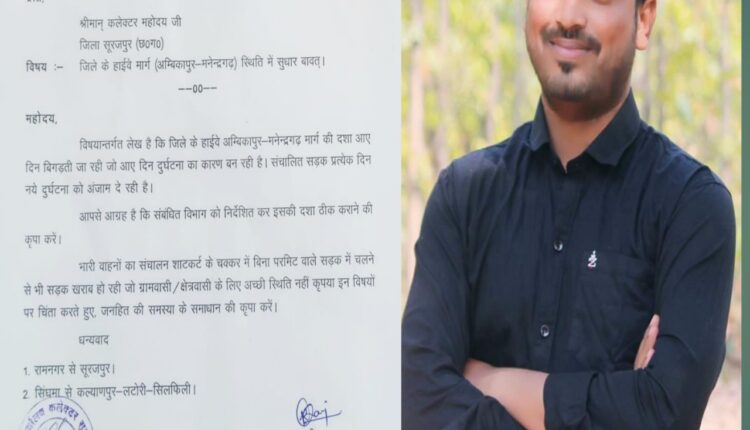 प्रति,
श्रीमान् कलेक्टर महोदय जी
जिला सूरजपुर (छ०ग०)
विषय :– जिले के हाईवे मार्ग (अम्बिकापुर–मनेन्द्रगढ़) स्थिति में सुधार बावत्।
––00––
महोदय,
विषयान्तर्गत लेख है कि जिले के हाईवे अम्बिकापुर–मनेन्द्रगढ़ मार्ग की दशा आए
दिन बिगड़ती जा रही जो आए दिन दुर्घटना का कारण बन रही है। संचालित सड़क प्रत्येक दिन
नये दुर्घटना को अंजाम दे रही है।
आपसे आग्रह है कि संबंधित विभाग को निर्देशित कर इसकी दशा ठीक कराने की
कृपा करें।
भारी वाहनों का संचालन शाटकर्ट के चक्कर में बिना परमिट वाले सड़क में चलने
से भी सड़क खराब हो रही जो ग्रामवासी/क्षेत्रवासी के लिए अच्छी स्थिति नहीं कृपया इन विषयों
पर चिंता करते हुए, जनहित की समस्या के समाधान की कृपा करें।
धन्यवाद
1. रामनगर से सूरजपुर।
2. सिंघमा से कल्याणपुर–लटोरी–सिलफिली।
कलेक्टर